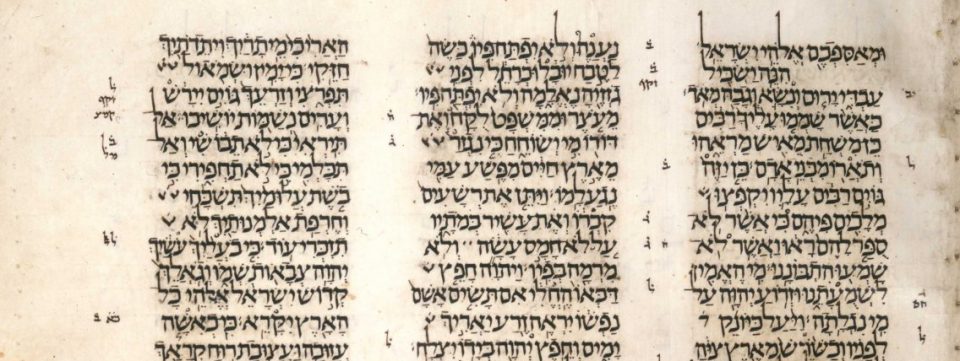 ומאספכם אלהי ישראל
הנה ישכיל
עבדי ירום ונשא וגבה מאד
כאשר שממו עליך רבים
כן משחת מאיש מראהו
ותארו מבני אדם כן יזה
גוים רבים עליו יקפצו
מלכים פיהם כי אשר לא
ספר להם ראו ואשר לא
שמעו התבוננו מי האמין
לשמעתנו וזרוע יהוה על
מי נגלתה ויעל כיונק
לפניו וכשרש מארץ ציה
נענה ולא יפתח פיו כשה
לטבח יובל וכרחל לפני
גזזיה נאלמה ולא יפתח פיו
מעצר וממשפט לקח ואת
דורו מי ישוחח כי נגזר
מארץ חיים מפשע עמי
נגע למו ויתן את רשעים
קברו ואת עשיר במתיו
על לא חמס עשה ולא
מרמה בפיו ויהוה חפץ
דכאו החלי אם תשים אשם
נפשו יראה זרע יאריך
ימים וחפץ יהוה בידו יצלח
האריכי מיתריך ויתדתיך
חזקי כי ימין ושמאול
תפרצי וזרעך גוים יירש
וערים נשמות יושיבו אל
תיראי כי לא תבושי ואל
תכלמי כי לא תחפירי כי
בשת עלומיך תשכחי
וחרפת אלמנותיך לא
תזכרי עוד כי בעליך עשיך
יהוה צבאות שמו וגאלך
קדוש ישראל אלהי כל
הארץ יקרא כי כאשה
עזובה ועצובת רוח קראך